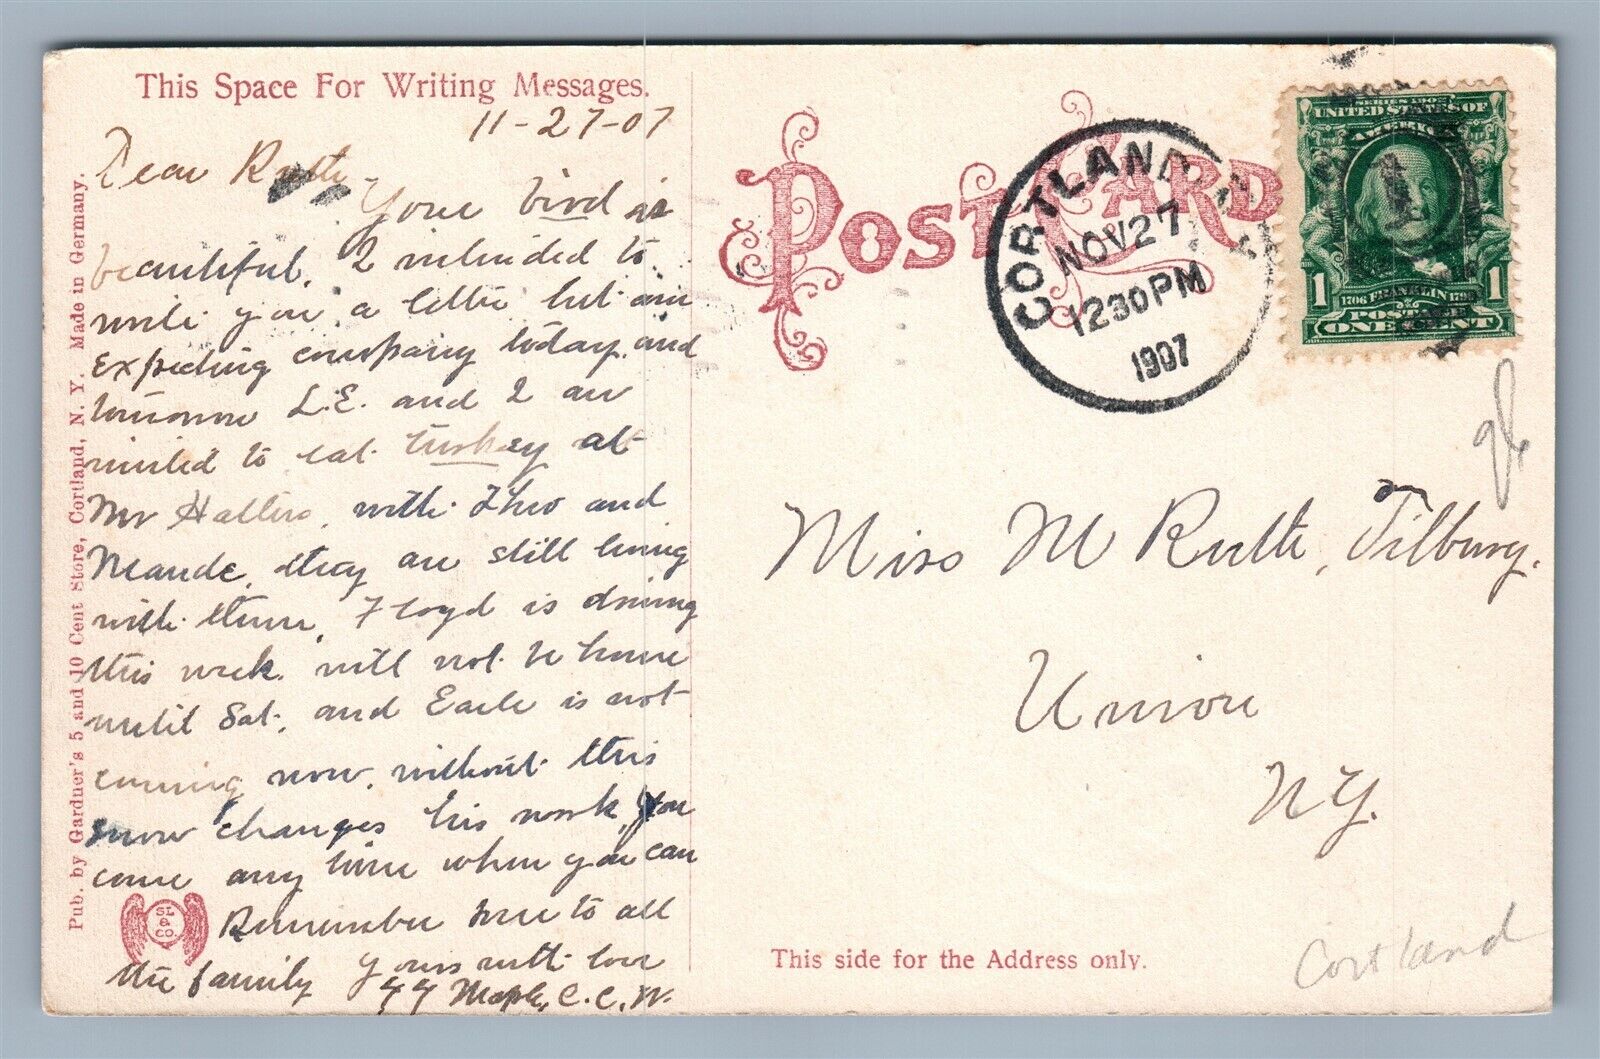 This Space For Writing Messages.
11-27-07
Dear Ruth -
Your bird is
beautiful. I intended to
write you a letter but am
Expecting company today, and
tomorrow L.E. and I are
invited to eat turkey at
Mr with Theo and
Maude, they are still living
with them, Floyd is driving
this week will not be home
until Sat. and Earle is not
coming now, without this
snow changes his work, you
come any time when you can
Remember me to all
the family Yours with love
44 Maple, C.C.W.
Pub. by Gardner's 5 and 10 Cent Store, Cortland, N. Y. Made in Germany.
SL
&
CO.
POST CARD
CORTLAND
NOV 27
1230 PM
1907
SERIES 1902
UNITED STATES OF
AMERICA
1 1
1706 FRANKLIN 1790
POSTAGE
ONE CENT
Miss M Ruth Tilbury.
Union
N.Y.
This side for the Address only.
Cortland